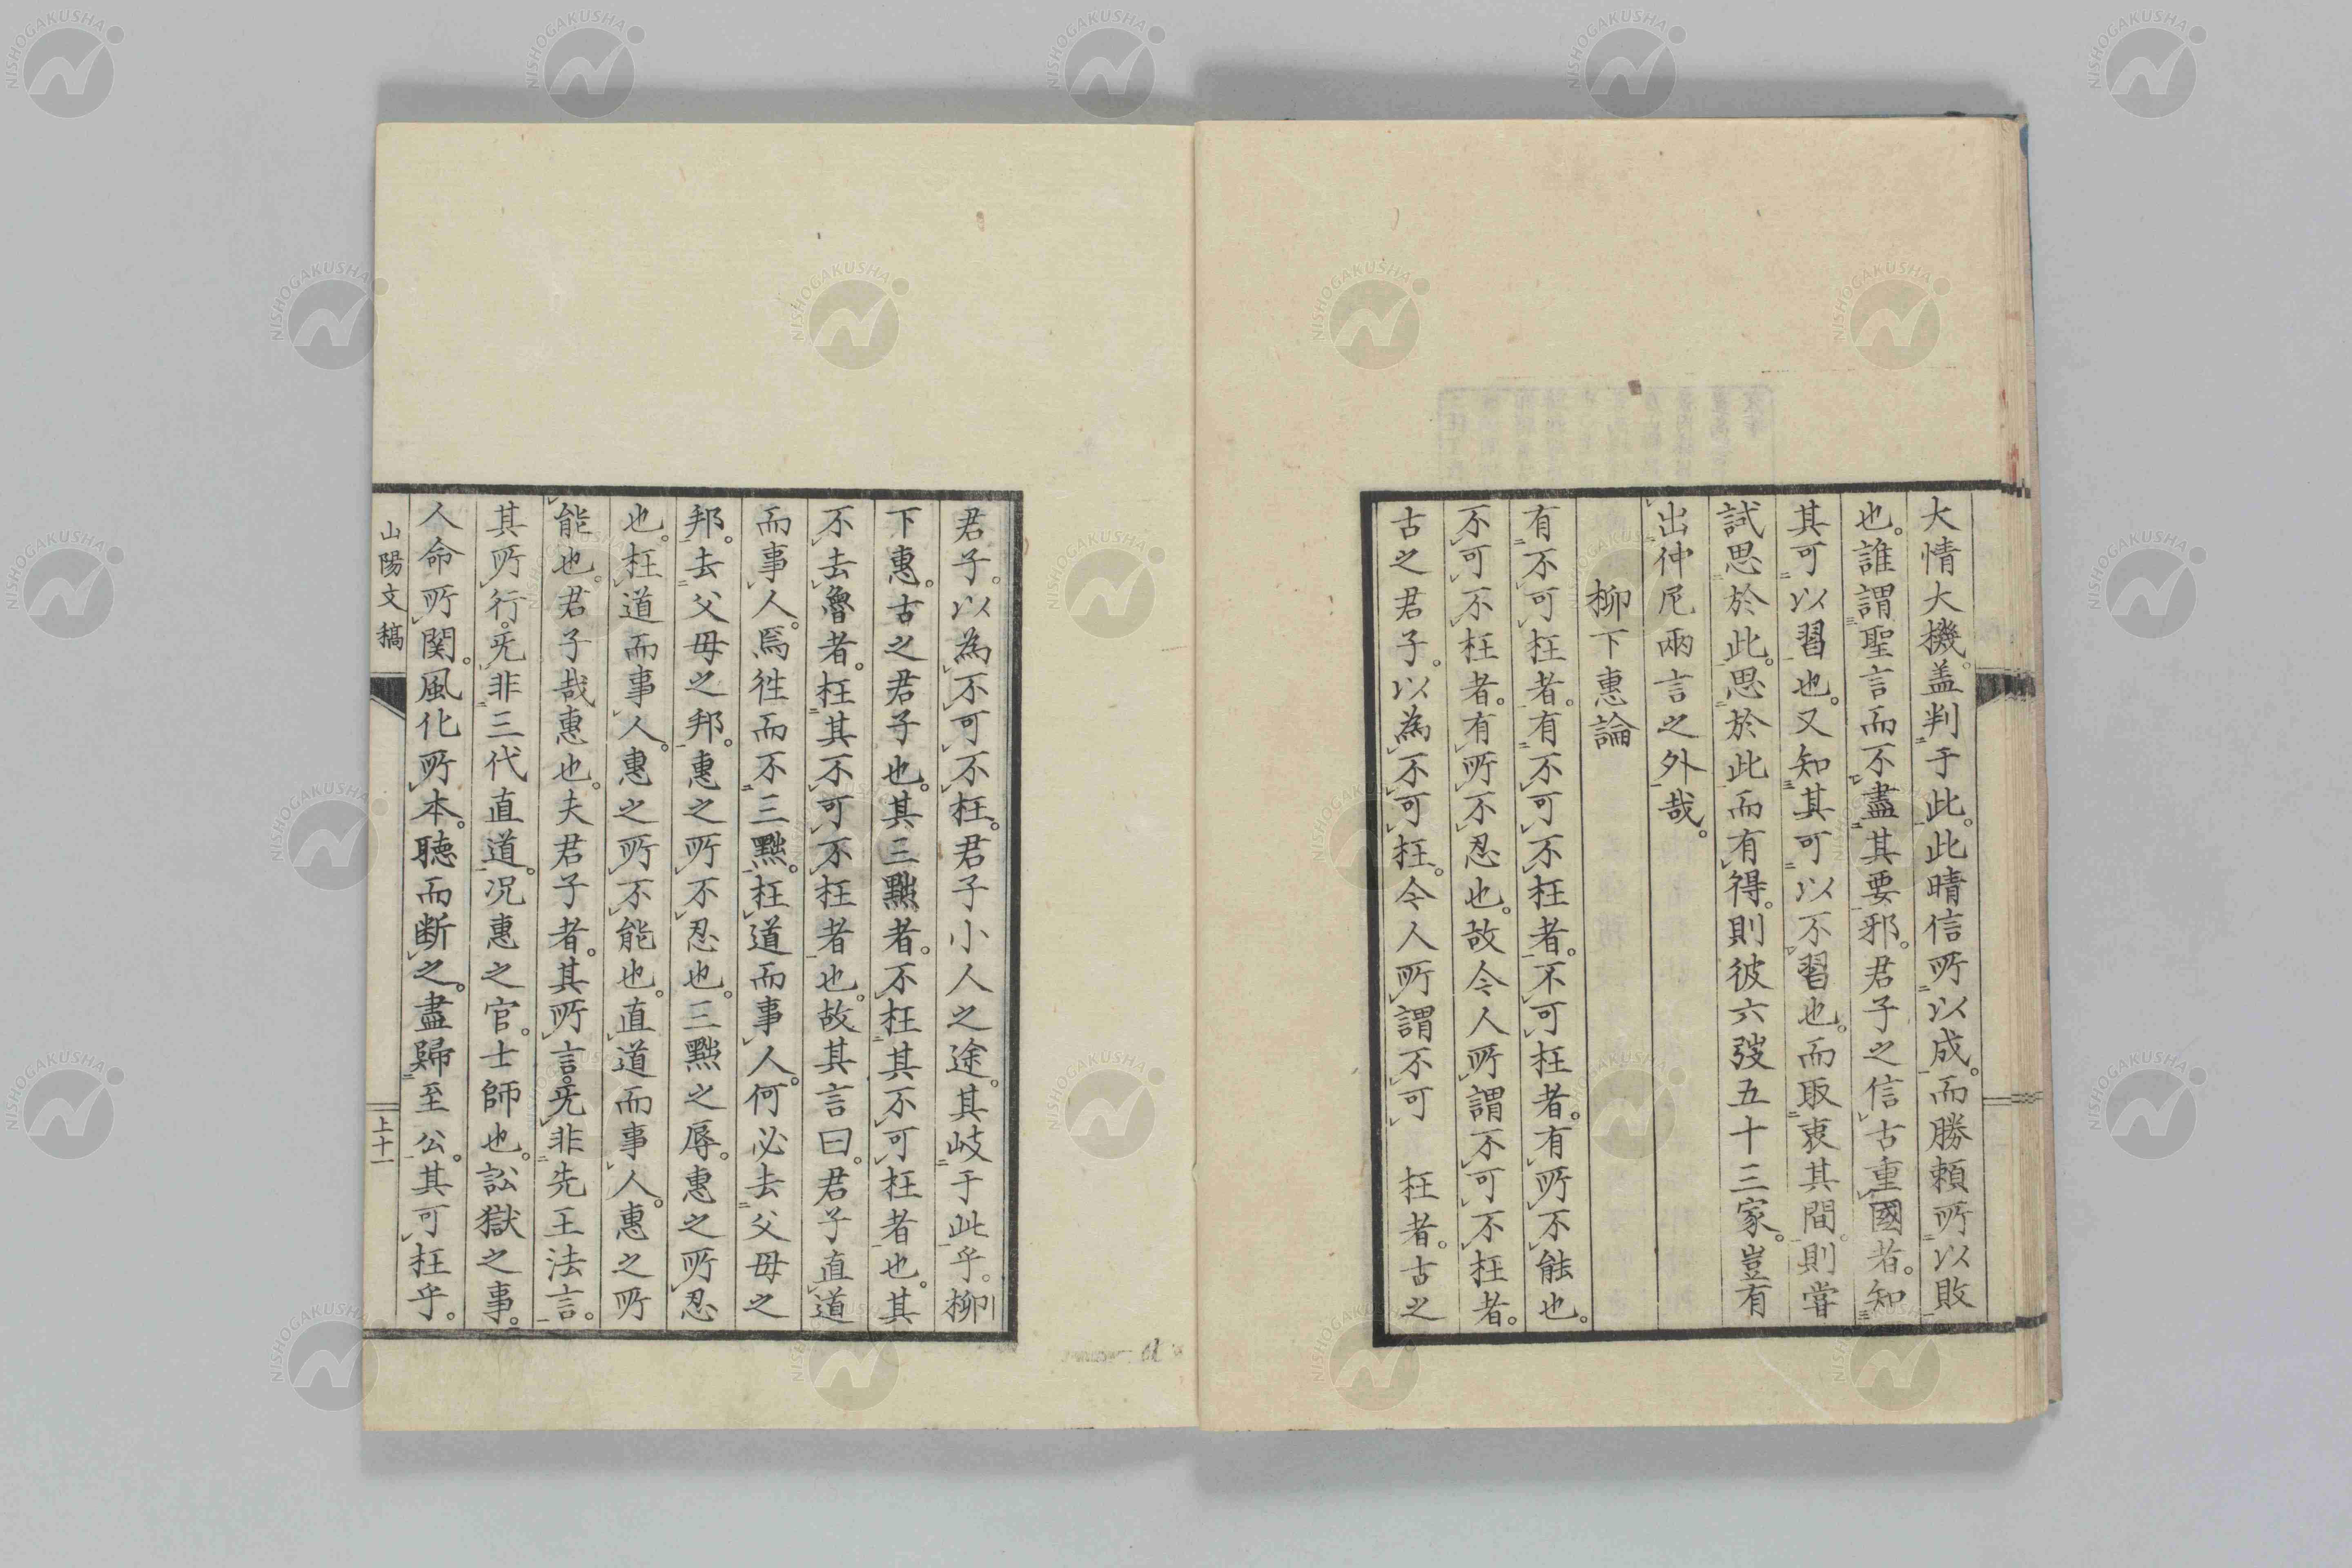 大情大機。盖判于此。此晴信所以成。而勝頼所以敗
也。誰謂聖言而不盡其要邪。君子之信古重國者。知
其可以習也。又知其可以不習也。而取衷其間。則嘗
試思於此。思於此而有得。則彼六弢五十三家。豈有
出仲尼兩言之外哉。
柳下惠論
有不可枉者。有不可不枉者。不可枉者。有所不能也。
不可不枉者。有所不忍也。故今人所謂不可不枉者。
古之君子。以為不可枉。今人所謂不可 枉者。古之
君子。以為不可不枉。君子小人之途。其岐于此乎。柳
下惠。古之君子也。其三黜者。不枉其不可枉者也。其
不去魯者。枉其不可不枉者也。故其言曰。君子直道
而事人。焉徃而不三黜。枉道而事人。何必去父母之
邦。去父母之邦。惠之所不忍也。三黜之辱。惠之所忍
也。枉道而事人。惠之所不能也。直道而事人。惠之所
能也。君子哉惠也。夫君子者。其所言。旡非先王法言。
其所行。旡非三代直道。况惠之官。士師也。訟獄之事。
人命所関。風化所本。聴而断之。盡歸至公。其可枉乎。
山陽文稿
上十一
NISHOGAKUSHA